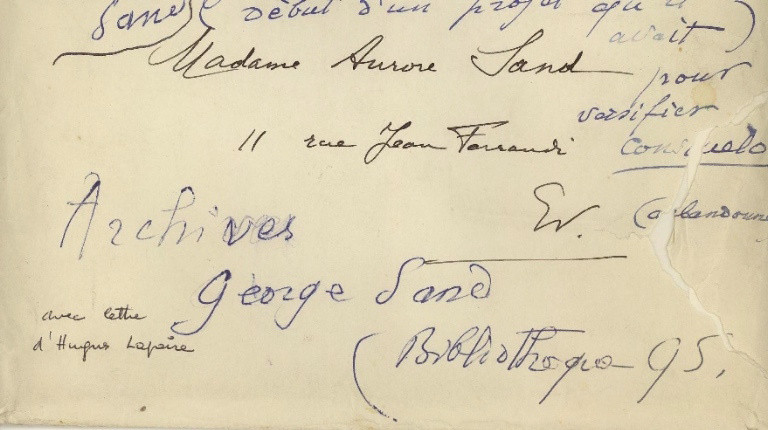 Sand (début d'un projet qu'il
avait )
Madame Aurore Sand
pour
versifier
11 rue Jean Ferrandi
Consuelo
Ev.
(abandonné
Archives
George Sand
avec lettre
d'Hugues Lapaire
(Bibliothèque GS,